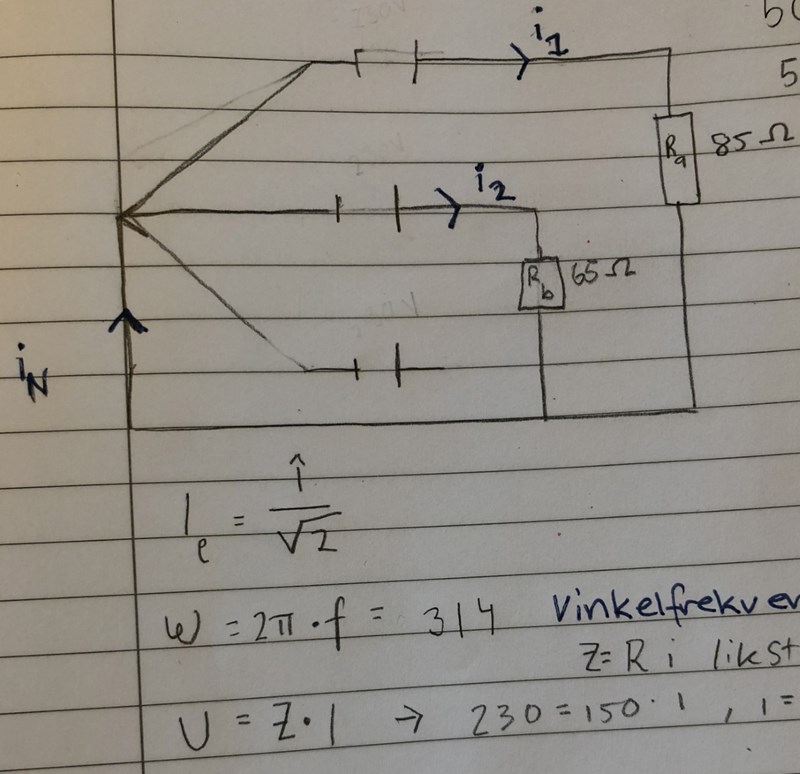 50
5
i1
Ra 85 Ω
i2
Rb 65 Ω
iN
Ie = î / √2
ω = 2π · f = 314 Vinkelfrekven
Z = R i likst
U = Z · I → 230 = 150 · I , I =